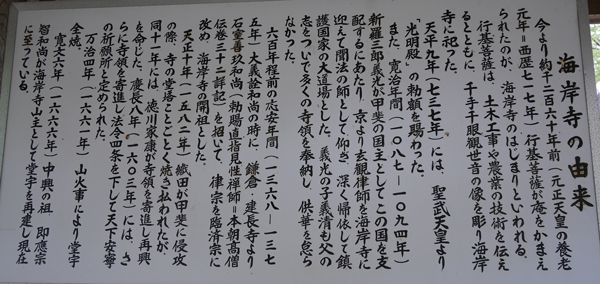 海岸寺の由来
今より約千二百六十年前(元正天皇の養老
元年=西歴七一七年)行基菩薩が庵をかまえ
られたのが、海岸寺のはじまりといわれる。
行基菩薩は、土木工事や農業の技術を伝え
るとともに、千手千眼観世音の像を彫り海岸
寺に祀った。
天平九年(七三七年)には、聖武天皇より
光明殿の勅額を賜わった。
また、寛治年間(一〇八七―一〇九四年)
新羅三郎義光が甲斐の国主としてこの国を支
配するにあたり、京より玄觀律師を海岸寺に
迎えて聞法の師として仰ぎ、深く帰依して鎮
護国家の大道場とした。義光の子義清も父の
志をついで多くの寺領を奉納し、供華を怠ら
なかった。
六百年程前の応安年間(一三六八―一三七
五年)大義詮和尚の時に、鎌倉・建長寺より
石室善玖和尚(勅賜直指見性禅師=本朝高僧
伝巻三十二詳記)を招いて、律宗を臨済宗に
改め、海岸寺の開祖とした。
天正十年(一五八二年)織田が甲斐に侵攻
の際、寺の堂塔ことごとく焼き払われたが、
同十一年には、徳川家康が寺領を寄進し再興
を命じた。慶長八年(一六〇三年)には、さ
らに寺領を寄進し法令四条を下して天下安寧
の祈願所と定められた。
万治四年(一六六一年)山火事により堂宇
全焼。
寛文六年(一六六六年)中興の祖 即應宗
智和尚が海岸寺山主として堂宇を再建し現在
に至っている。